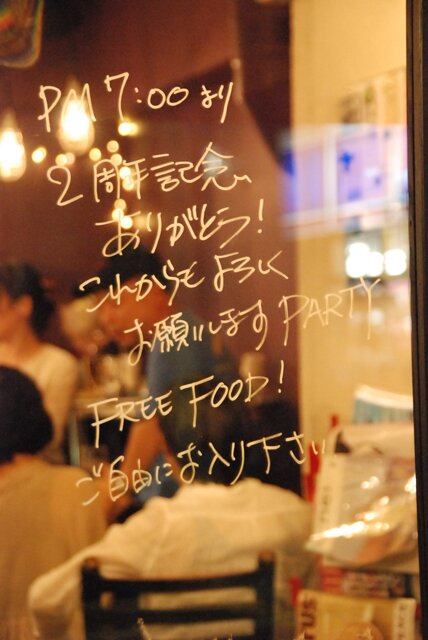 PM 7:00 より
2周年記念
ありがとう!
これからもよろしく
お願いします PARTY
FREE FOOD!
ご自由にお入り下さい